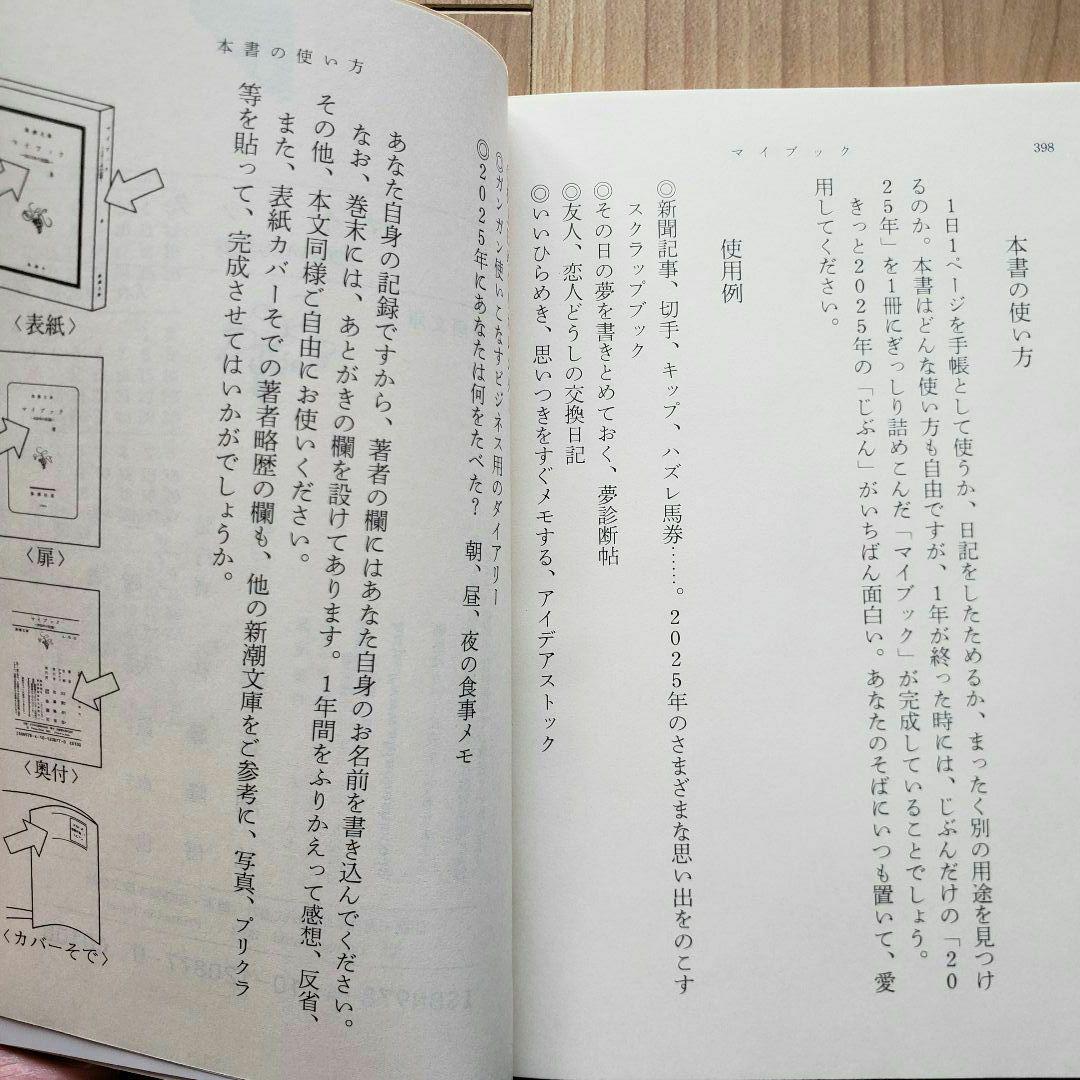 398
マイブック
本書の使い方
1日1ページを手帳として使うか、日記をしたためるか、まったく別の用途を見つけ
るのか。本書はどんな使い方も自由ですが、1年が終った時には、じぶんだけの「20
25年」を1冊にぎっしり詰めこんだ「マイブック」が完成していることでしょう。
きっと2025年の「じぶん」がいちばん面白い。あなたのそばにいつも置いて、愛
用してください。
使用例
◎新聞記事、切手、キップ、ハズレ馬券……。2025年のさまざまな思い出をのこす
スクラップブック
◎その日の夢を書きとめておく、夢診断帖
◎友人、恋人どうしの交換日記
◎いいひらめき、思いつきをすぐメモする、アイデアストック
本書の使い方
◎ガンガン使いこなすビジネス用のダイアリー
◎2025年にあなたは何をたべた？　朝、昼、夜の食事メモ
あなた自身の記録ですから、著者の欄にはあなた自身のお名前を書き込んでください。
なお、巻末には、あとがきの欄を設けてあります。1年間をふりかえって感想、反省、
その他、本文同様ご自由にお使いください。
また、表紙カバーそでの著者略歴の欄も、他の新潮文庫をご参考に、写真、プリクラ
等を貼って、完成させてはいかがでしょうか。
マイブック
〈表紙〉
マイブック
〈扉〉
マイブック
〈奥付〉
〈カバーそで〉